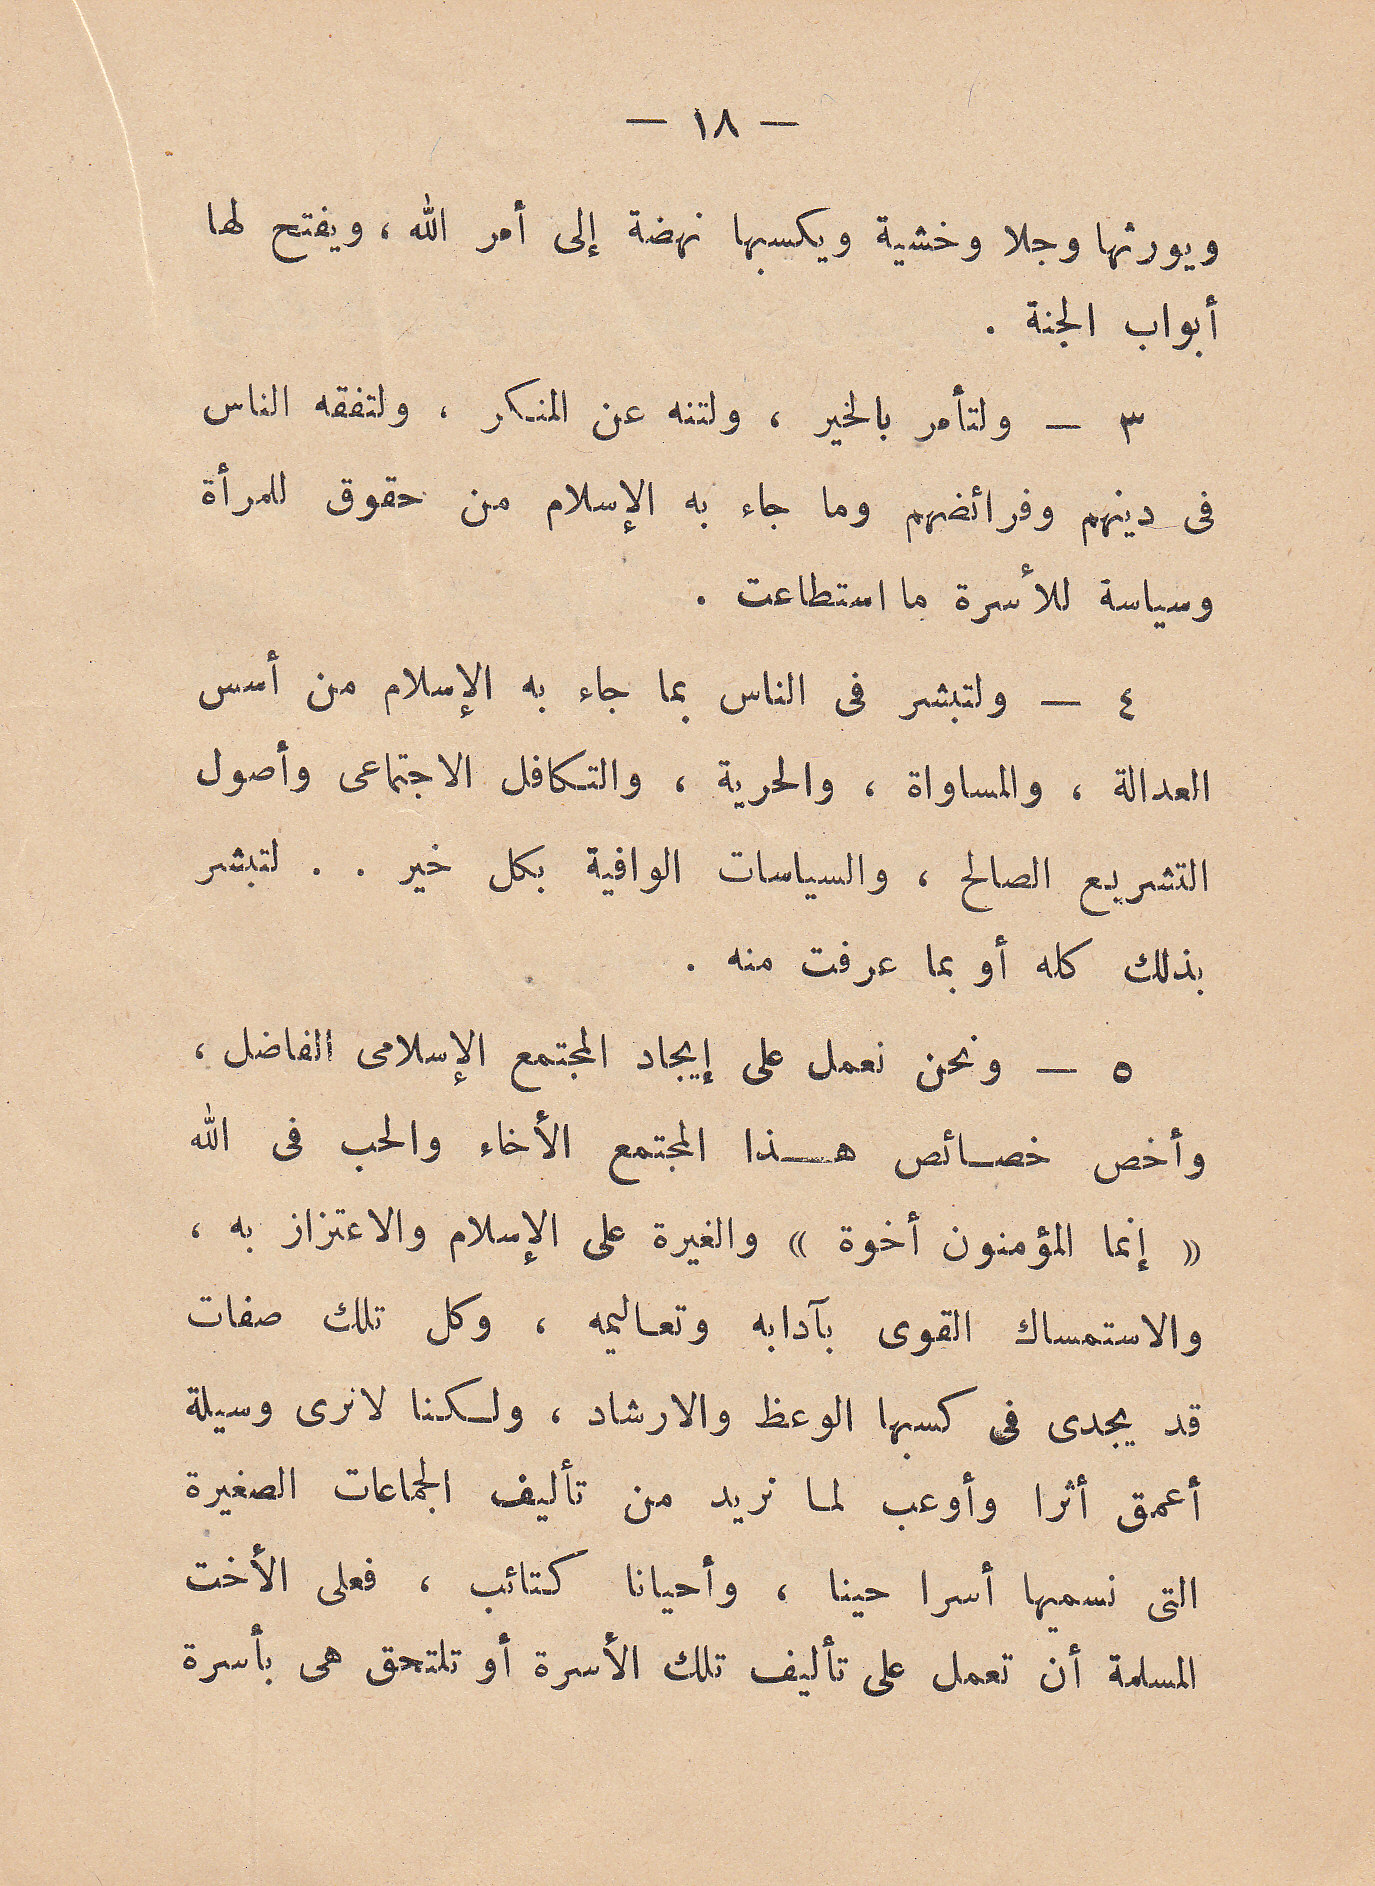 — ١٨ —
ويورثها وجلا وخشية ويكسبها نهضة إلى أمر الله ، ويفتح لها
أبواب الجنة .
٣ — ولتأمر بالخير ، ولتنه عن المنكر ، ولتفقه الناس
فى دينهم وفرائضهم وما جاء به الإسلام من حقوق للمرأة
وسياسة للأسرة ما استطاعت .
٤ — ولتبشر فى الناس بما جاء به الإسلام من أسس
العدالة ، والمساواة ، والحرية ، والتكافل الاجتماعى وأصول
التشريع الصالح ، والسياسات الوافية بكل خير . . لتبشر
بذلك كله أو بما عرفت منه .
٥ — ونحن نعمل على إيجاد المجتمع الإسلامى الفاضل ،
وأخص خصائص هذا المجتمع الأخاء والحب فى الله
« إنما المؤمنون أخوة » والغيرة على الإسلام والاعتزاز به ،
والاستمساك القوى بآدابه وتعاليمه ، وكل تلك صفات
قد يجدى فى كسبها الوعظ والارشاد ، ولكنا لانرى وسيلة
أعمق أثرا وأوعب لما نريد من تأليف الجماعات الصغيرة
التى نسميها أسرا حينا ، وأحيانا كتائب ، فعلى الأخت
المسلمة أن تعمل على تأليف تلك الأسرة أو تلتحق هى بأسرة